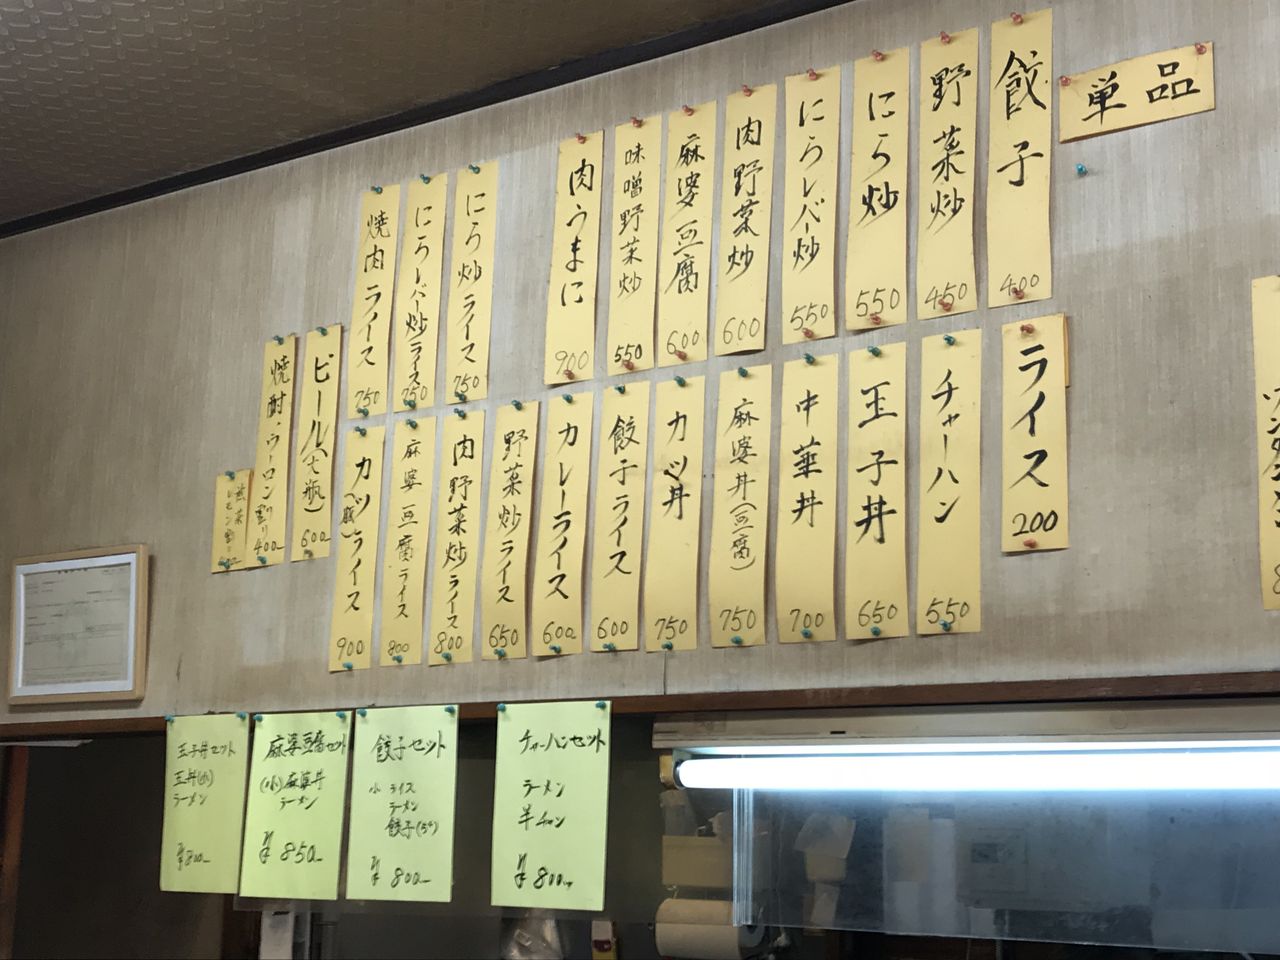 単品
餃子 400
野菜炒 450
にら炒 550
にらレバー炒 550
肉野菜炒 600
麻婆豆腐 600
味噌野菜炒 550
肉うまに 900
にら炒ライス 750
にらレバー炒ライス 750
焼肉ライス 750
ライス 200
チャーハン 550
玉子丼 650
中華丼 700
麻婆丼(豆腐) 750
カツ丼 750
餃子ライス 600
カレーライス 600
野菜炒ライス 650
肉野菜炒ライス 800
麻婆豆腐ライス 800
カツライス 900
ビール(大瓶) 600
焼酎、ウーロン割り 400
チャーハンセット
ラーメン
半チャン
¥800
餃子セット
小ライス
ラーメン
餃子(5ケ)
¥800
麻婆豆腐セット
(小)麻婆丼
ラーメン
¥850
玉子丼セット
玉丼(小)
ラーメン
¥800